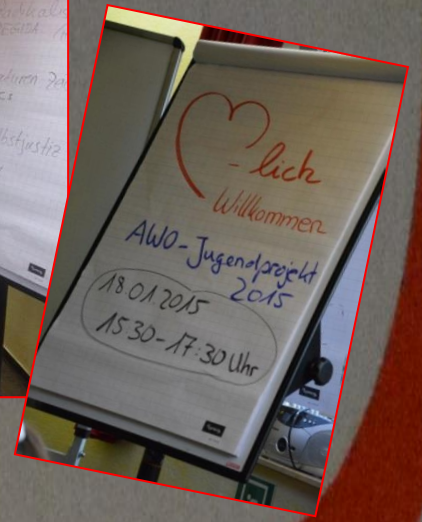 -lich
Willkommen
AWO-Jugendprojekt
2015
18.01.2015
15 30-17:30 Uhr